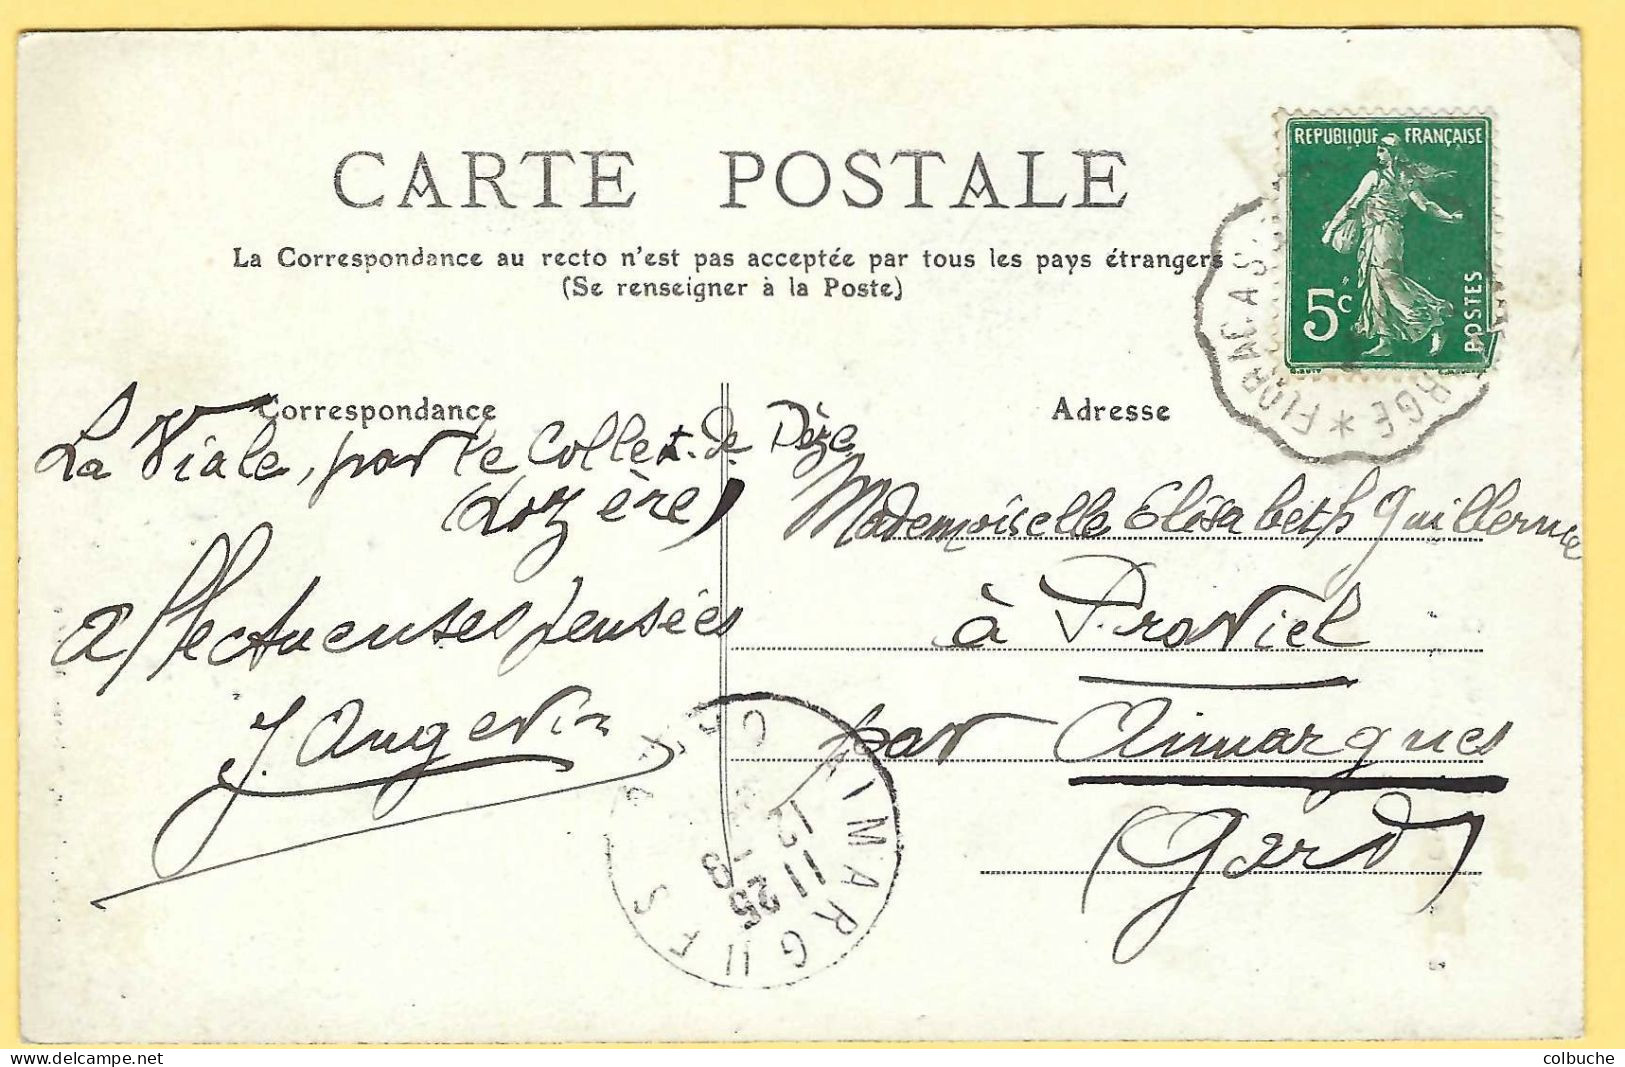 CARTE POSTALE
La Correspondance au recto n'est pas acceptée par tous les pays étrangers
(Se renseigner à la Poste)
REPUBLIQUE FRANÇAISE
5c
POSTES
FLORAC A
Correspondance
La Viale, par le Collet-de-Dèze
(Lozère)
affectueuses pensées
J. Angevin
Adresse
Mademoiselle Elisabeth Guillerme
à Proviel
par Aimargues
(Gard)
AIMARGUES
12
11 25
colbuche